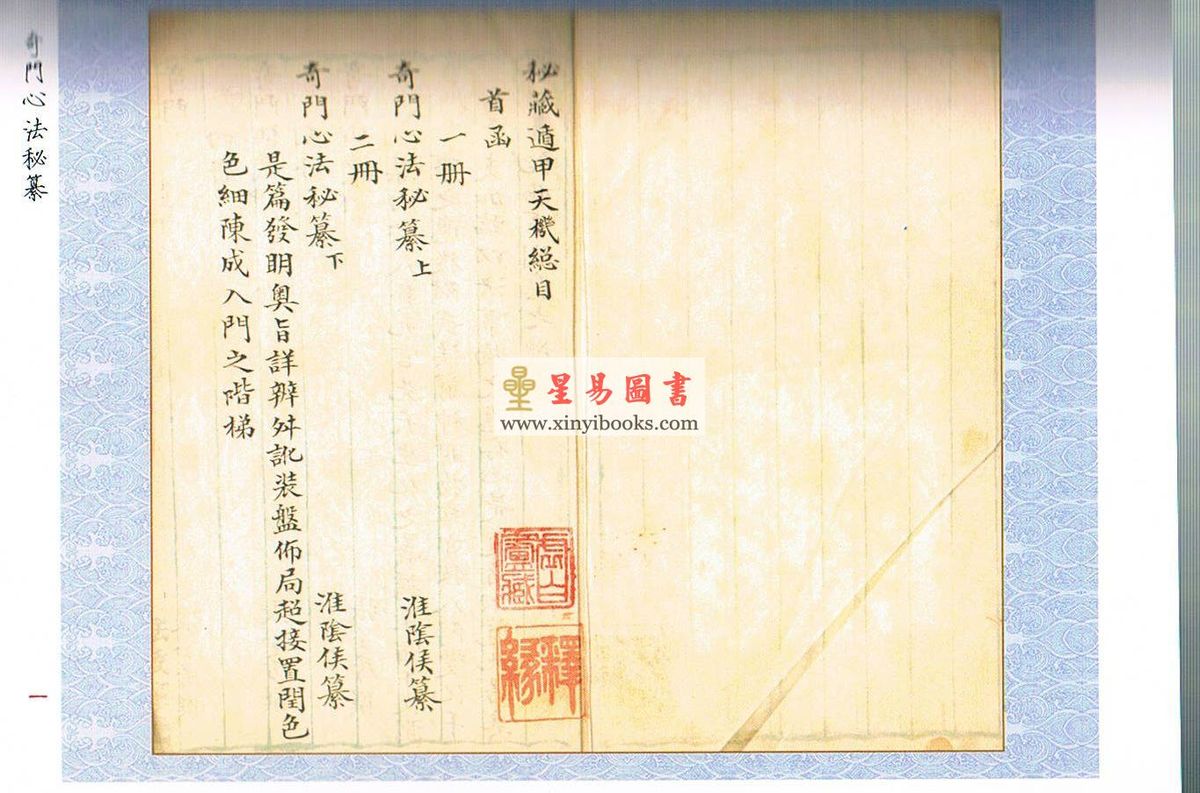 奇門心法秘纂
一
秘藏遁甲天機總目
首函
一冊
奇門心法秘纂上 淮陰侯纂
二冊
奇門心法秘纂下 淮陰侯纂
是篇發明奧旨詳辨舛訛裝盤佈局超接置閏色
色細陳成入門之階梯
星易圖書
www.xinyibooks.com
長白
盧藏
釋
緣